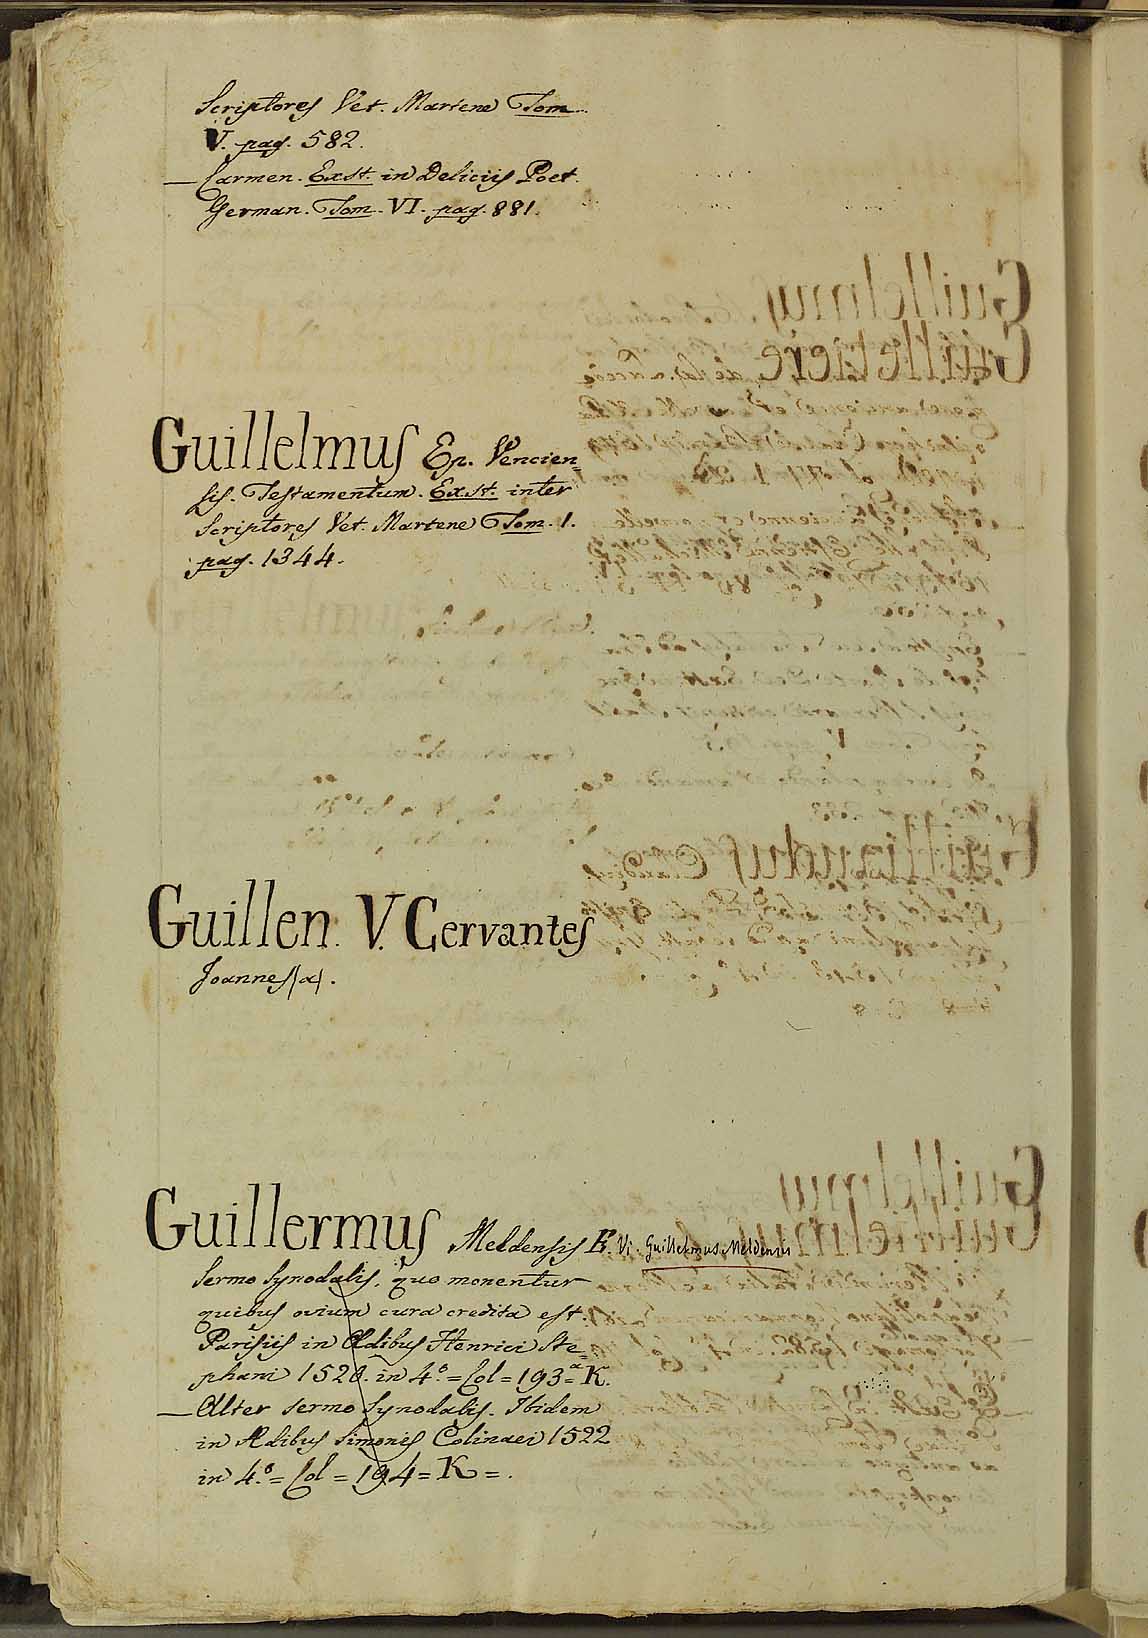 Scriptores Vet. Martene Tom
V. pag. 582.
— Carmen. Exst. in Deliciis Poet.
German. Tom. VI. pag. 881.
Guillelmus Ep. Vencien=
sis. Testamentum. Exst. inter
Scriptores Vet. Martene Tom. 1.
pag. 1344.
Guillen. V. Cervantes
Joannes (a).
Guillermus Meldensis E. Vi. Guillelmus Meldensis
Sermo Synodalis, quo monentur
quibus ovium cura credita est.
Parisiis in Ædibus Henrici Ste=
phani 1520. in 4.º = Col = 193 = a K.
— Alter Sermo Synodalis. Ibidem
in Ædibus Simonis Colinaei 1522
in 4.º = Col = 194 = K = .